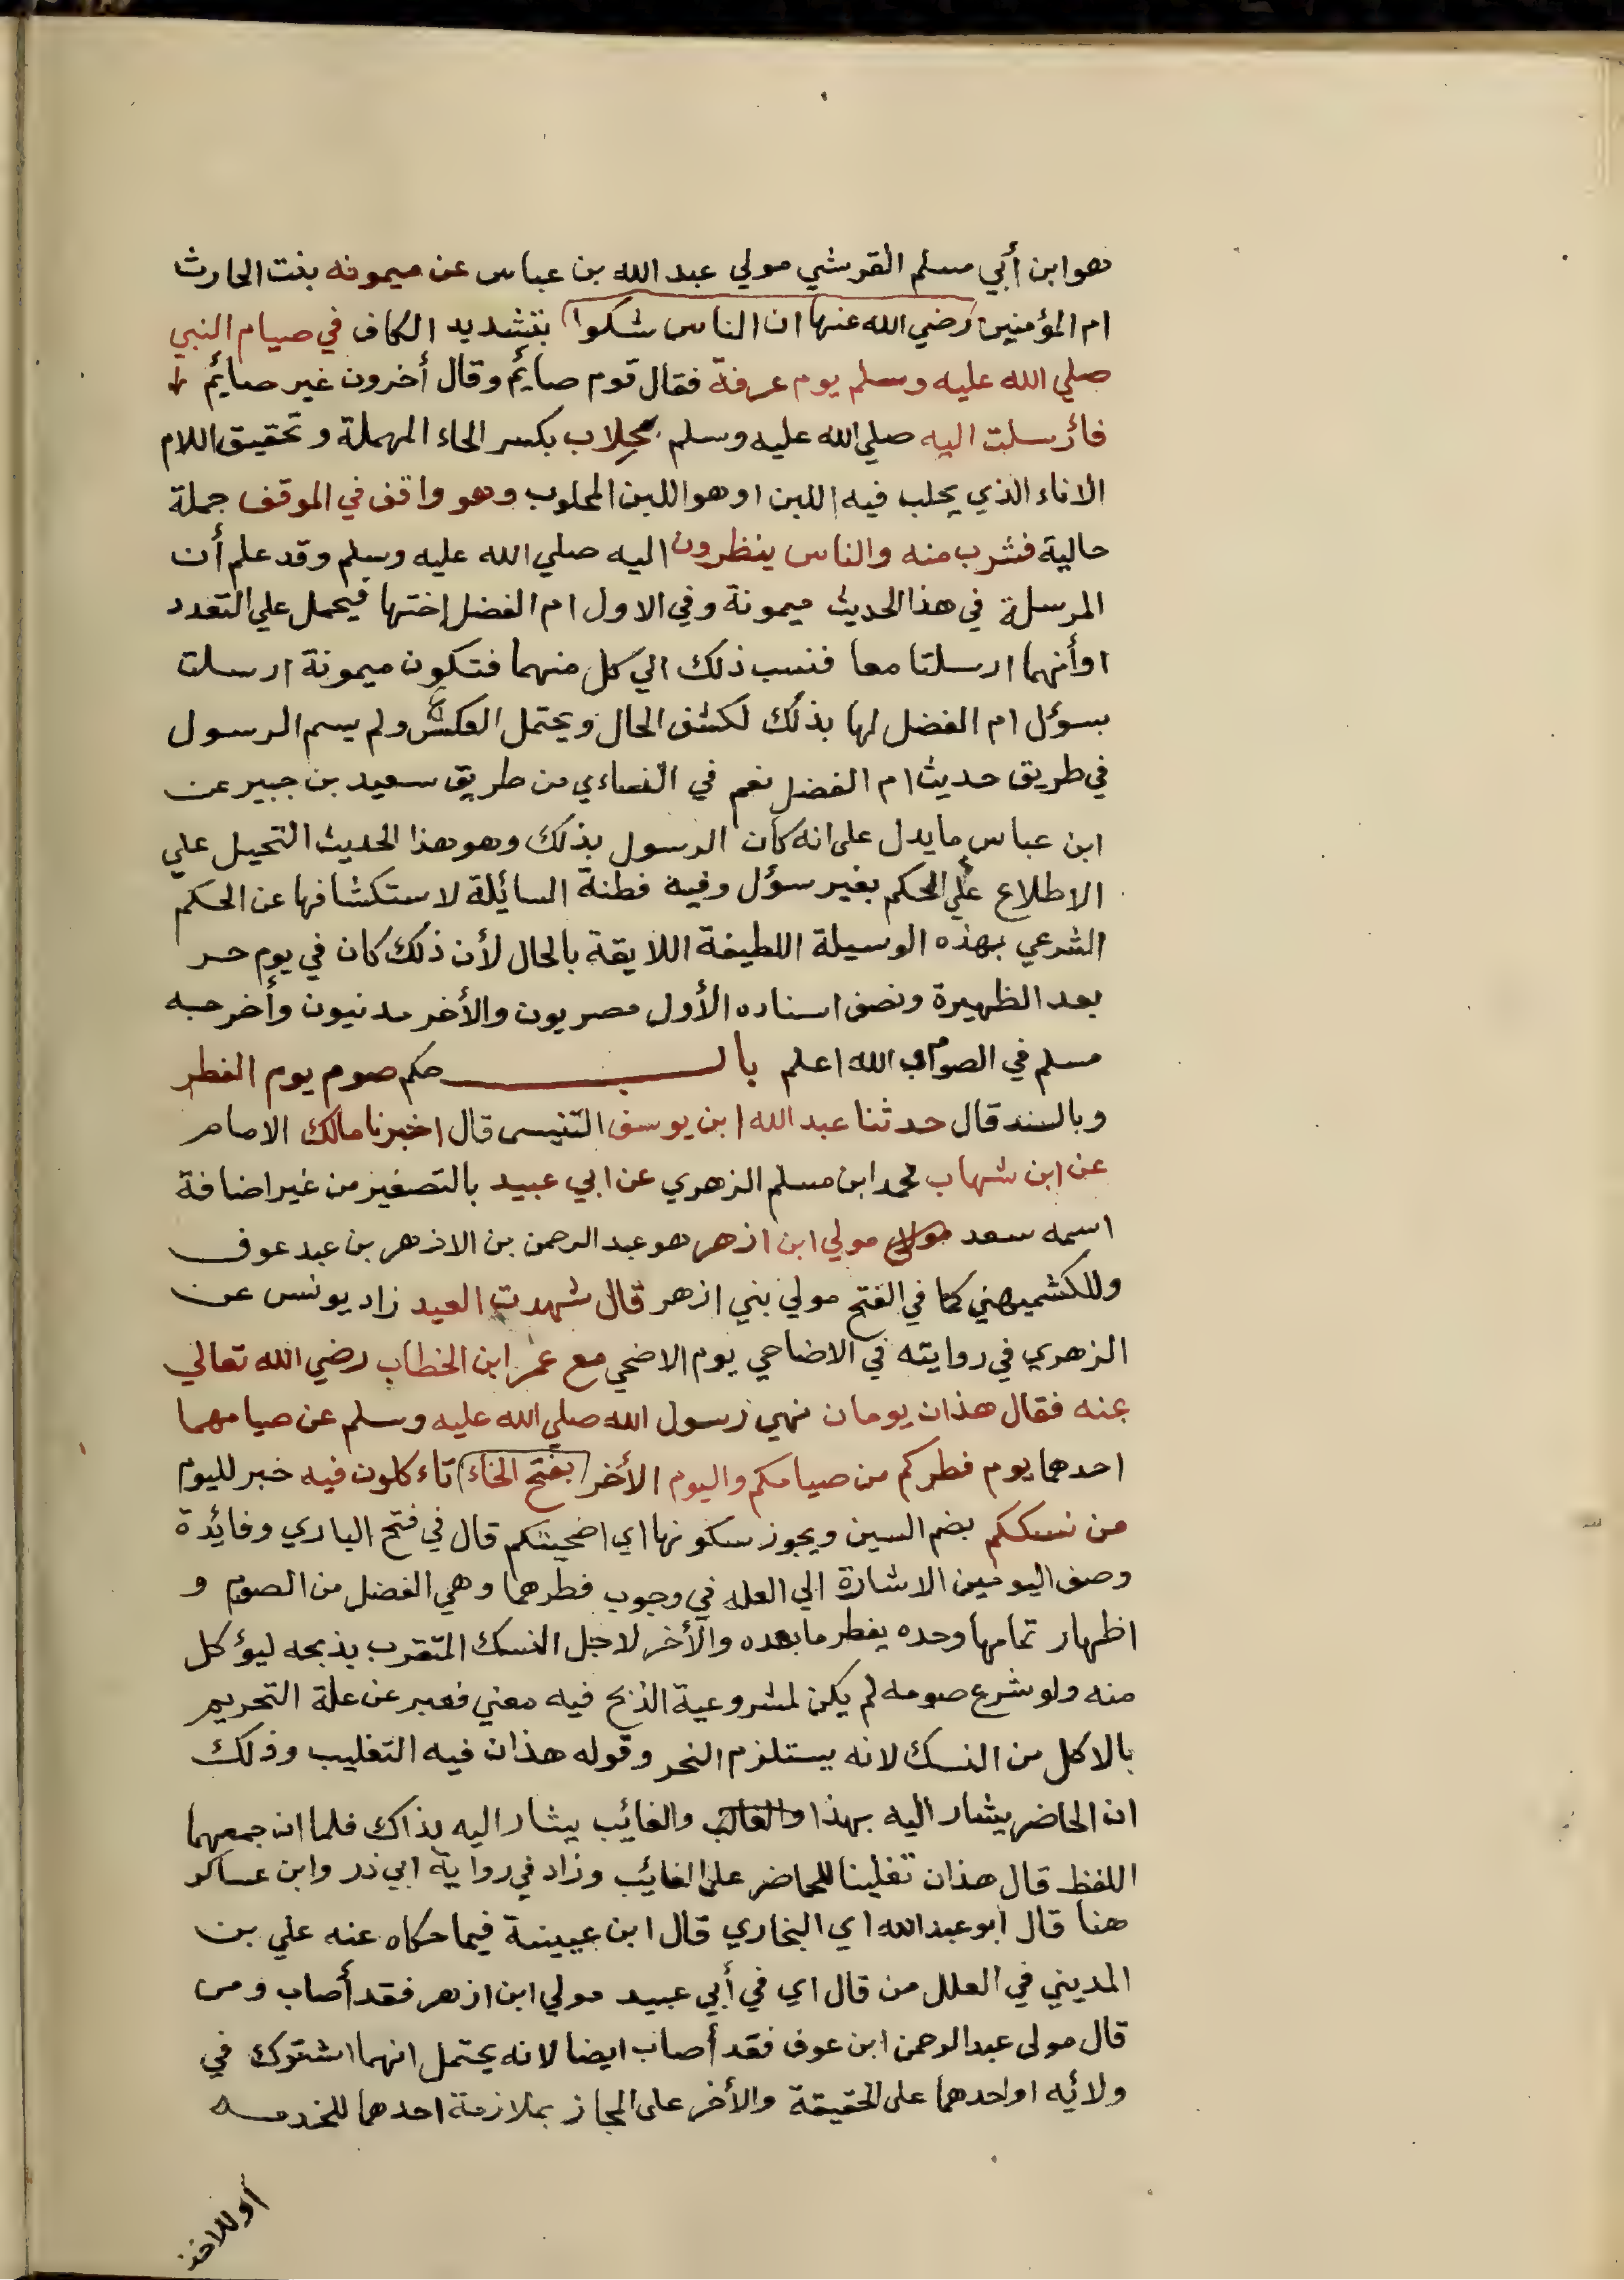 هو ابن أبي مسلم القرشي مولي عبد الله بن عباس عن ميمونه بنت الحارث
ام المؤمنين رضي الله عنها ان الناس شكوا بتشديد الكاف في صيام النبي
صلي الله عليه وسلم يوم عرفة فقال قوم صائم وقال أخرون غير صائم
فأرسلت اليه صلي الله عليه وسلم بحِلاب بكسر الحاء المهملة وتحقيق اللام
الاناء الذي يحلب فيه اللبن او هو اللبن المحلوب وهو واقف في الموقف جملة
حالية فشرب منه والناس ينظرون اليه صلي الله عليه وسلم وقد علم أن
المرسلة في هذا الحديث ميمونة وفي الاول ام الفضل إختها فيحمل علي التعدد
اوأنهما ارسلتا معا فنسب ذلك الي كل منهما فتكون ميمونة ارسلت
بسؤل ام الفضل لها بذلك لكشف الحال ويحتمل العكس ولم يسم الرسول
في طريق حديث ام الفضل نعم في النساءي من طريق سعيد بن جبير عن
ابن عباس ما يدل على انه كان الرسول بذلك وهو هذا الحديث التحيل علي
الاطلاع علي الحكم بغير سؤل وفيه فطنة السائلة لاستكشافها عن الحكم
الشرعي بهذه الوسيلة اللطيفة اللايقة بالحال لأن ذلك كان في يوم حر
بعد الظهيرة ونصف اسناده الأول مصريون والأخر مدنيون وأخرجه
مسلم في الصوم والله اعلم باب حكم صوم يوم الفطر
وبالسند قال حدثنا عبد الله ابن يوسف التنيسى قال اخبرنا مالك الامام
عن ابن شهاب محمد ابن مسلم الزهري عن ابي عبيد بالتصغير من غير اضافة
اسمه سعد مولي ابن ازهر هو عبد الرحمن بن الازهر بن عبد عوف
وللكشميهني كما في الفتح مولي بني ازهر قال شهدت العيد زاد يونس عن
الزهري في روايته في الاضاحي يوم الاضحي مع عمر ابن الخطاب رضي الله تعالي
عنه فقال هذان يومان نهي رسول الله صلي الله عليه وسلم عن صيامهما
احدهما يوم فطركم من صيامكم واليوم الأخر بفتح الخاء تاءكلون فيه خبر لليوم
من نسككم بضم السين ويجوز سكونها اي اضحيتكم قال في فتح الباري وفائدة
وصف اليومين الاشارة الي العله في وجوب فطرهما وهي الفضل من الصوم و
اظهار تمامها وحده يفطر ما بعده والأخر لاجل النسك المتقرب بذبحه ليؤكل
منه ولو شرع صومه لم يكن لمشروعية الذبح فيه معني فعبر عن علة التحريم
بالاكل من النسك لانه يستلزم النحر وقوله هذان فيه التغليب وذلك
ان الحاضر يشار اليه بهذا والغائب يشار اليه بذاك فلما ان جمعهما
اللفظ قال هذان تغليبا للحاضر على الغائب وزاد في رواية ابي ذر وابن عساكر
هنا قال أبو عبد الله اي البخاري قال ابن عيينة فيما حكاه عنه علي بن
المديني في العلل من قال اي في أبي عبيد مولي ابن ازهر فقد أصاب ومن
قال مولى عبد الرحمن ابن عوف فقد أصاب ايضا لانه يحتمل انهما اشتوك في
ولائه او احدهما على الحقيقة والأخر على المجاز بملازمة احدهما للخدمه
أو للاخذ